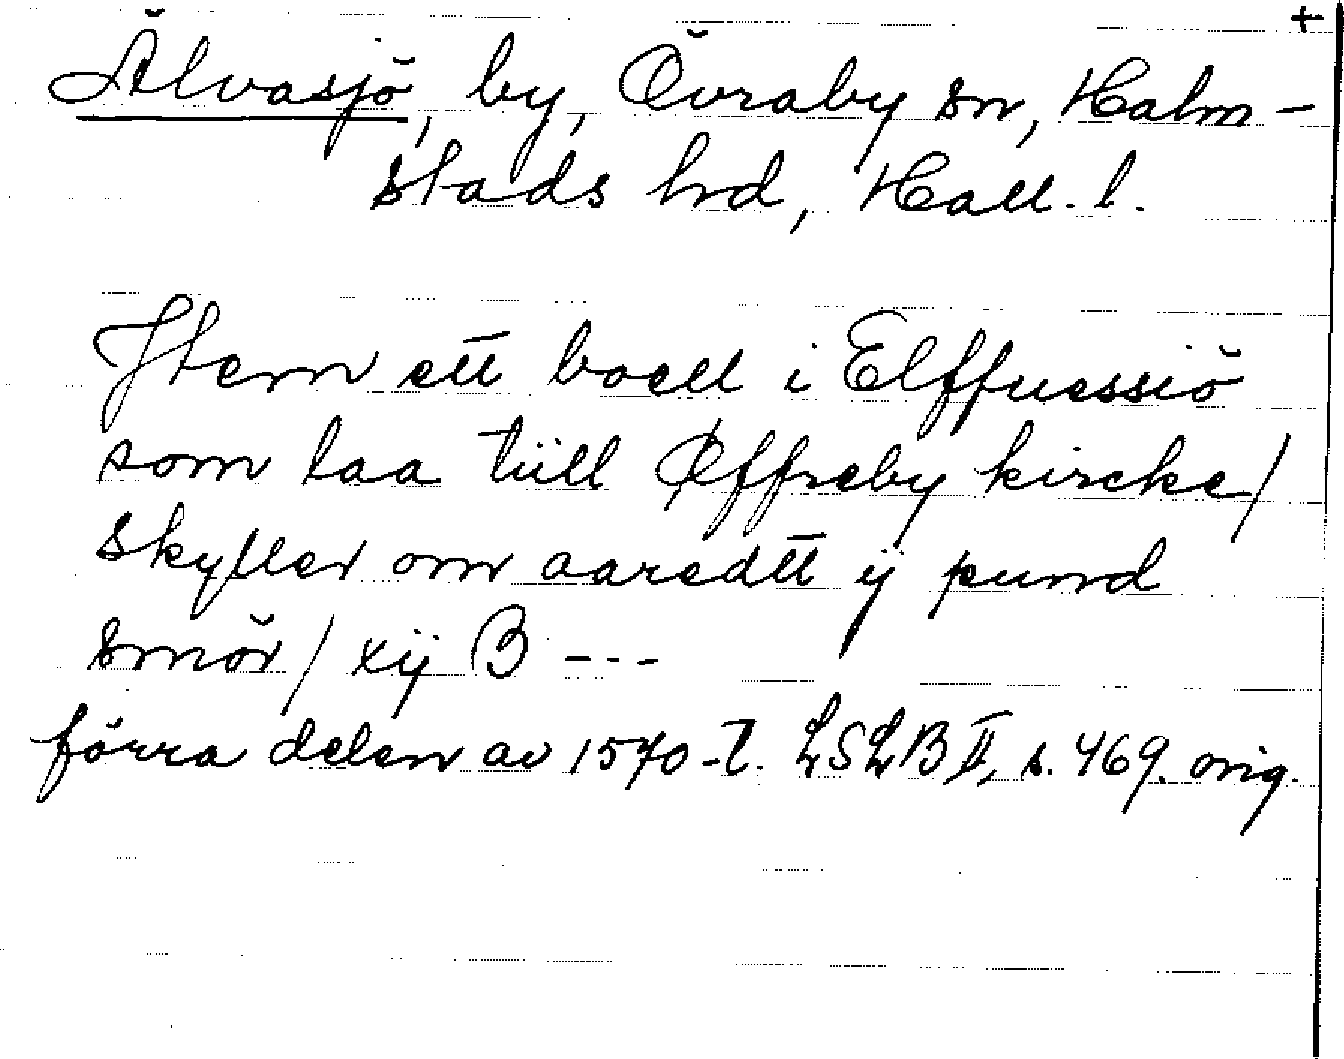 +
Älvasjö, by, Övraby sn, Halm-
stads hrd, Hall. l.
Jtem ett boell i Elffuessiö
som laa tiill Øffreby kircke/
skyller om aaredtt ij pund
smör/ xij B ---
förra delen av 1570-t. LSLB II, s. 469. orig.